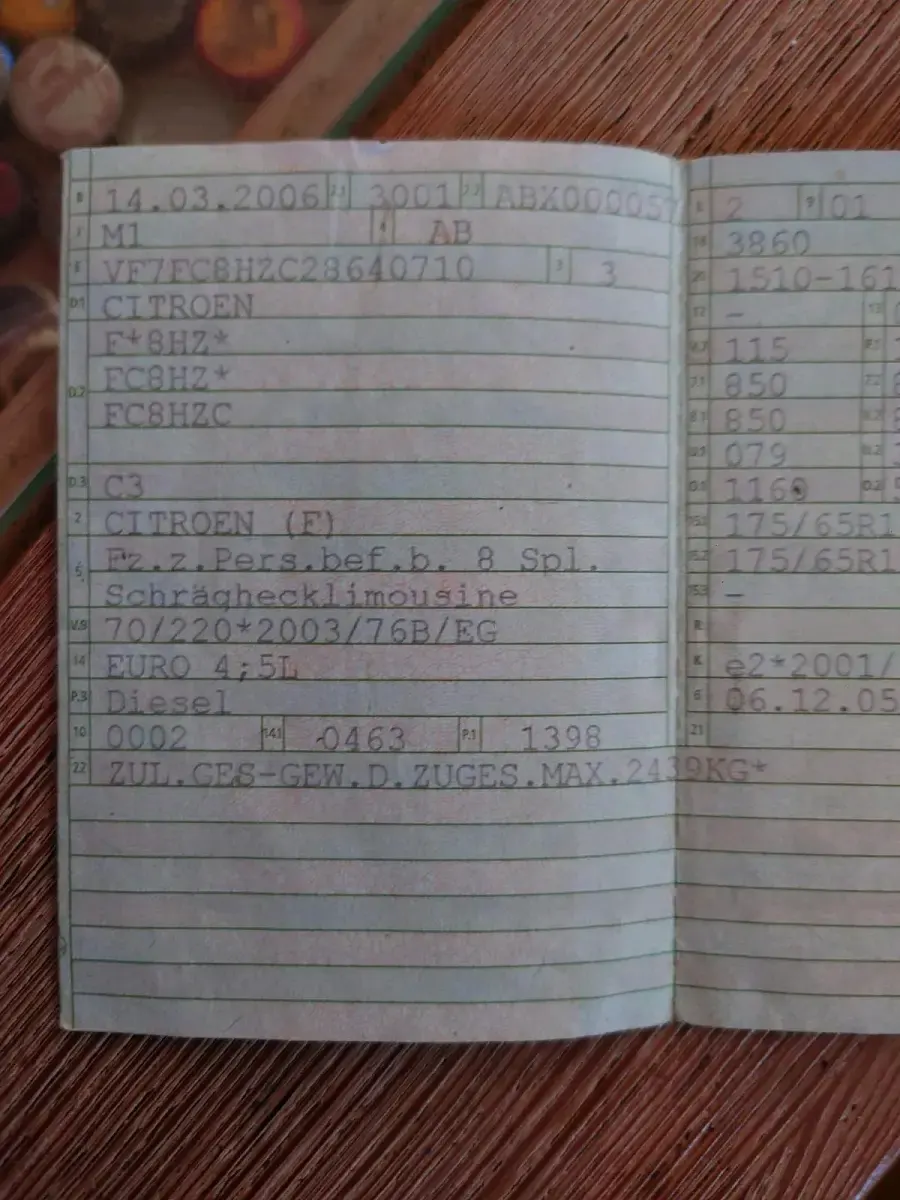 B 14.03.2006 2.1 3001 2.2 ABX000057
J M1 4 AB
E VF7FC8HZC28640710 3 3
D.1 CITROEN
F*8HZ*
D.2 FC8HZ*
FC8HZC
D.3 C3
2 CITROEN (F)
5 Fz.z.Pers.bef.b. 8 Spl.
Schräghecklimousine
V.9 70/220*2003/76B/EG
14 EURO 4;5L
P.3 Diesel
10 0002 14.1 0463 P.1 1398
22 ZUL.GES-GEW.D.ZUGES.MAX.2439KG*
L 2 9 01
18 3860
20 1510-161
12 - 13
V.7 115 F.1
7.1 850 7.2
8.1 850 8.2
U.1 079 U.2
O.1 1160 O.2
15.1 175/65R1
15.2 175/65R1
15.3 -
R
K e2*2001/
6 06.12.05
21